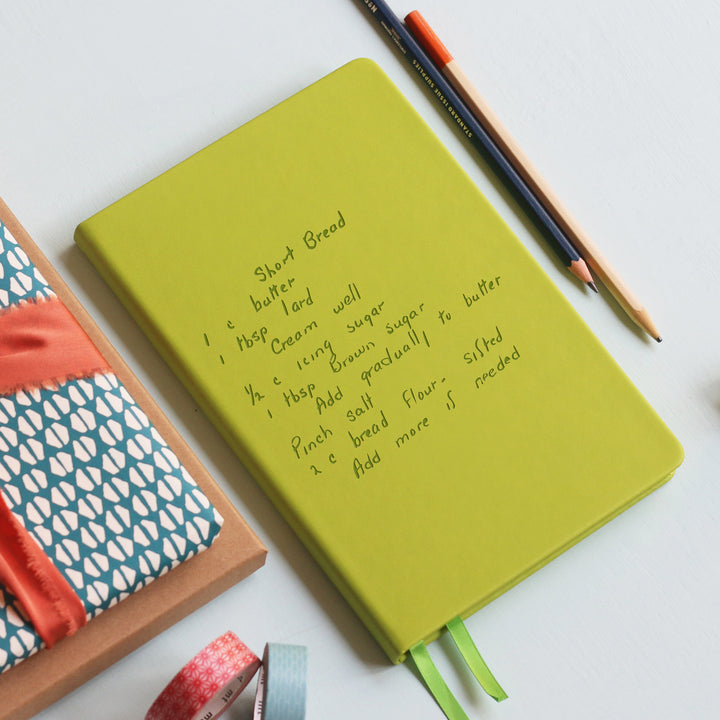 Short Bread
1 c butter
1 tbsp lard
Cream well
1/2 c icing sugar
1 tbsp Brown sugar
Add gradually to butter
Pinch salt
2 c bread flour - sifted
Add more if needed
STANDARD ISSUE SUPPLIES
mt